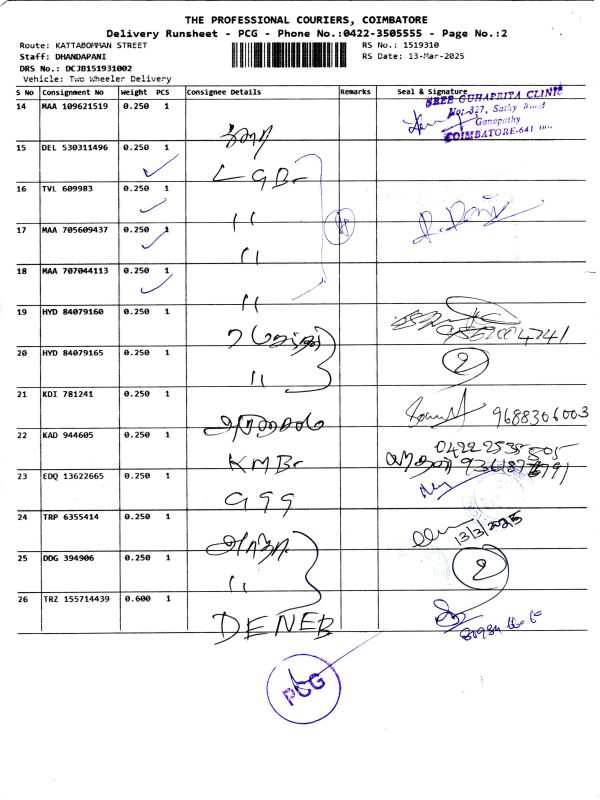 THE PROFESSIONAL COURIERS, COIMBATORE
Delivery Runsheet - PCG - Phone No.:0422-3505555 - Page No.:2
Route: KATTABOMMAN STREET
RS No.: 1519310
Staff: DHANDAPANI
RS Date: 13-Mar-2025
DRS No.: DCJB151931002
Vehicle: Two Wheeler Delivery
S No Consignment No Weight PCS Consignee Details Remarks Seal & Signature
SREE GUHAPRIYA CLINIC
No:-327, Sathy Road
Ganapathy
COIMBATORE-641
14 MAA 109621519 0.250 1
15 DEL 530311496 0.250 1
LGBr
16 TVL 609983 0.250 1
"
17 MAA 705609437 0.250 1
"
18 MAA 707044113 0.250 1
"
19 HYD 84079160 0.250 1
20 HYD 84079165 0.250 1
" 2
21 KDI 781241 0.250 1
9688306003
22 KAD 944605 0.250 1
KMBr
23 EDQ 13622665 0.250 1
GGG
24 TRP 6355414 0.250 1
13/3/2025
25 DDG 394906 0.250 1
" 2
26 TRZ 155714439 0.600 1
DENEB
PCG